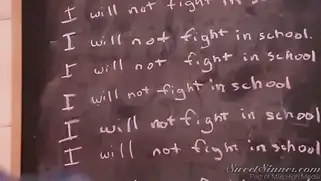 I will not fight in
I will not fight in school.
I will not fight in school
I will not fight in school
I will not fight in school
I will not fight in school
SweetSinner.com
Part of Mile High Media